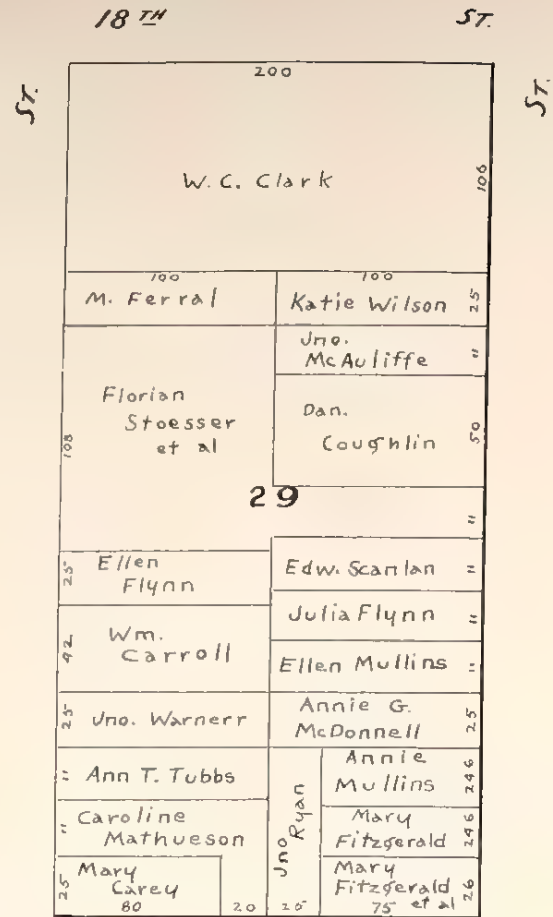 18TH ST.
ST. ST.
200
W. C. Clark
106
100 100
M. Ferral
Katie Wilson 25
Jno.
McAuliffe "
Florian
Stoesser
et al
108
Dan.
Coughlin
50
29
"
25 Ellen
Flynn
Edw. Scanlan "
Julia Flynn "
42 Wm.
Carroll
Ellen Mullins "
25 Jno. Warnerr
Annie G.
McDonnell 25
" Ann T. Tubbs
Annie
Mullins 246
Jno Ryan
" Caroline
Mathueson
Mary
Fitzgerald 246
25 Mary
Carey
80
20
25
Mary
Fitzgerald
75 et al
26